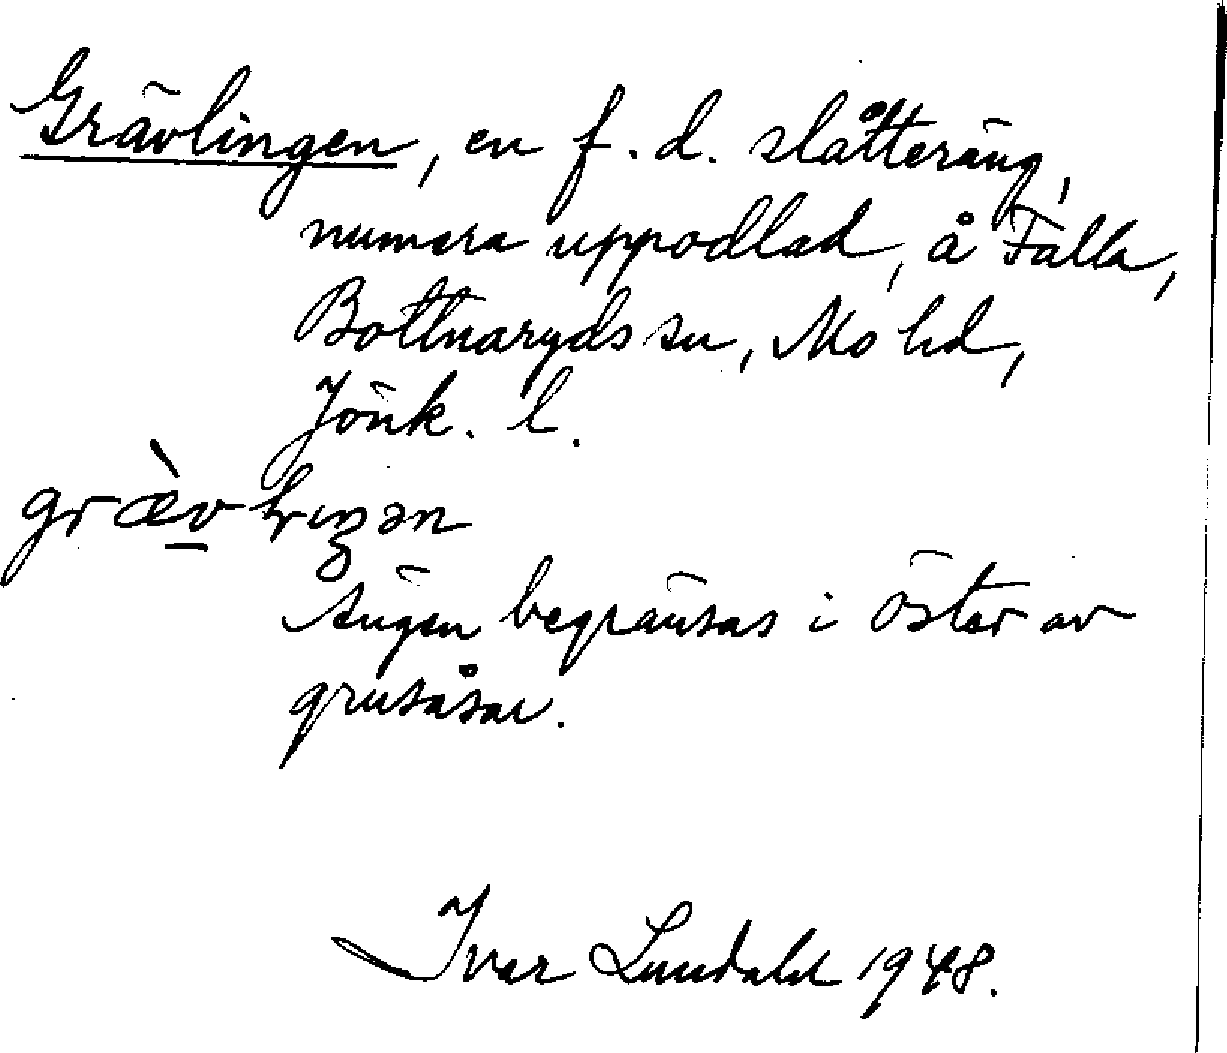 Grävlingen, en f. d. slåtteräng,
numera uppodlad, å Falla,
Bottnaryds sn, Mo hd,
Jönk. l.
græ̀v
Ängen begränsas i öster av
grusåsar.
Ivar Lundahl 1948.